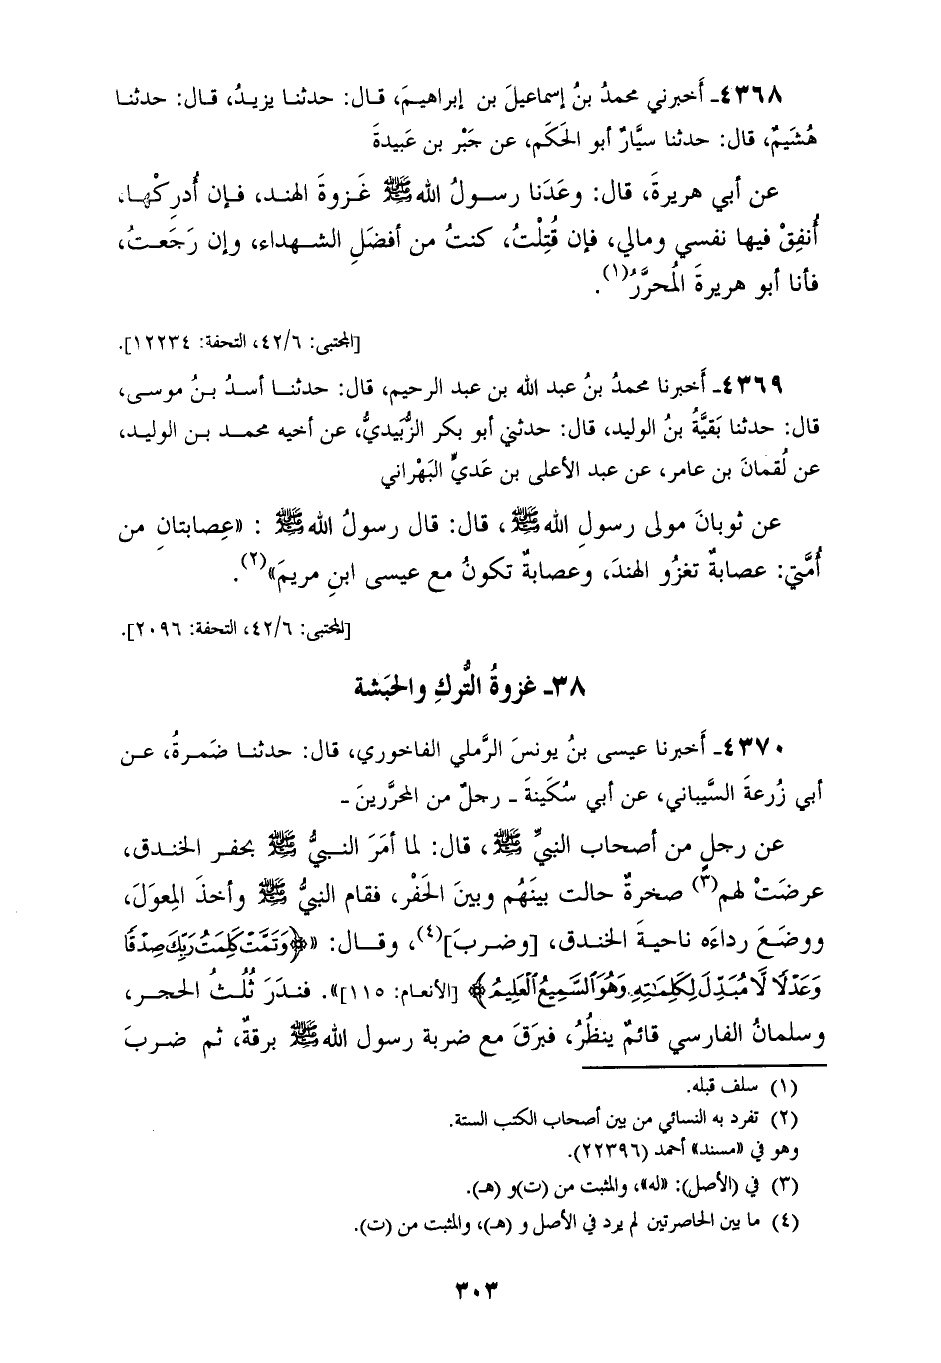 ٤٣٦٨ـ أَخبرني محمدُ بنُ إسماعيلَ بن إبراهيمَ، قال: حدثنا يزيدُ، قال: حدثنا
هُشَيمٌ، قال: حدثنا سيَّارٌ أبو الحَكَم، عن جَبْر بن عَبيدةَ
عن أبي هريرةَ، قال: وعَدَنا رسولُ اللهﷺ غَزوةَ الهند، فإن أُدرِكْها،
أُنفِقْ فيها نفسي ومالي، فإن قُتِلْتُ، كنتُ من أفضَلِ الشهداء، وإن رَجَعتُ،
فأنا أبو هريرةَ المُحرَّرُ(١).
[المجتبى: ٤٢/٦، التحفة: ١٢٢٣٤].
٤٣٦٩ـ أَخبرنا محمدُ بنُ عبد الله بن عبد الرحيم، قال: حدثنا أسدُ بنُ موسى،
قال: حدثنا بَقيَّةُ بنُ الوليد، قال: حدثني أبو بكر الزُّبَيديُّ، عن أخيه محمد بن الوليد،
عن لُقمانَ بن عامر، عن عبد الأعلى بن عَديٍّ البَهْراني
عن ثوبانَ مولى رسولِ اللهﷺ، قال: قال رسولُ اللهﷺ : «عِصابتانِ من
أُمَّتي: عصابةٌ تغزُو الهندَ، وعصابةٌ تكونُ مع عيسى ابنِ مريمَ»(٢).
[المجتبى: ٤٢/٦، التحفة: ٢٠٩٦].
٣٨ـ غزوةُ التُّركِ والحَبَشة
٤٣٧٠ـ أَخبرنا عيسى بنُ يونسَ الرَّملي الفاخوري، قال: حدثنا ضَمرةُ، عن
أبي زُرعةَ السَّيباني، عن أبي سُكَينةَ ـ رجلٌ من المحرَّرينَ ـ
عن رجلٍ من أصحاب النبيِّ ﷺ، قال: لما أمَرَ النبيُّ ﷺ بحفر الخندق،
عرضَتْ لهم(٣) صخرةٌ حالت بينَهُم وبينَ الحَفْر، فقام النبيُّ ﷺ وأخذَ المِعوَلَ،
ووضَعَ رداءَه ناحيةَ الخندق، [وضربَ](٤)، وقال: «﴿وَتَمَّتْ كَلِمَتُ رَبِّكَ صِدْقًا
وَعَدْلًا لَّا مُبَدِّلَ لِكَلِمَاتِهِ وَهُوَ السَّمِيعُ الْعَلِيمُ﴾ [الأنعام: ١١٥]». فندَرَ ثُلُثُ الحجر،
وسلمانُ الفارسي قائمٌ ينظُرُ، فبرَقَ مع ضربة رسول اللهﷺ برقةٌ، ثم ضربَ
(١) سلف قبله.
(٢) تفرد به النسائي من بين أصحاب الكتب الستة.
وهو في «مسند» أحمد (٢٢٣٩٦).
(٣) في (الأصل): «له»، والمثبت من (ت)و (هـ).
(٤) ما بين الحاصرتين لم يرد في الأصل و (هـ)، والمثبت من (ت).
٣٠٣